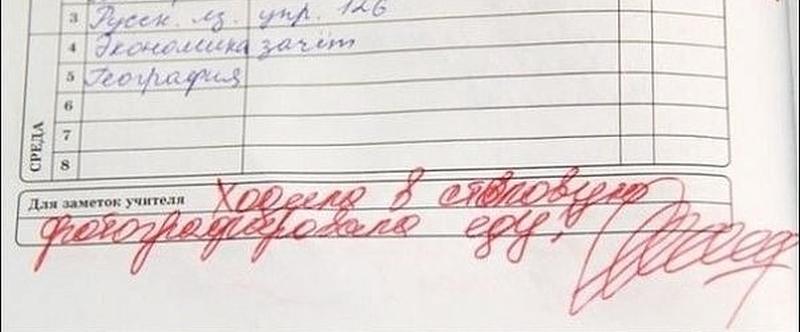 3 Русск. яз. упр. 126
4 Экономика зачёт
5 География
6
7
8
СРЕДА
Для заметок учителя Ходила в столовую
фотографировала еду,